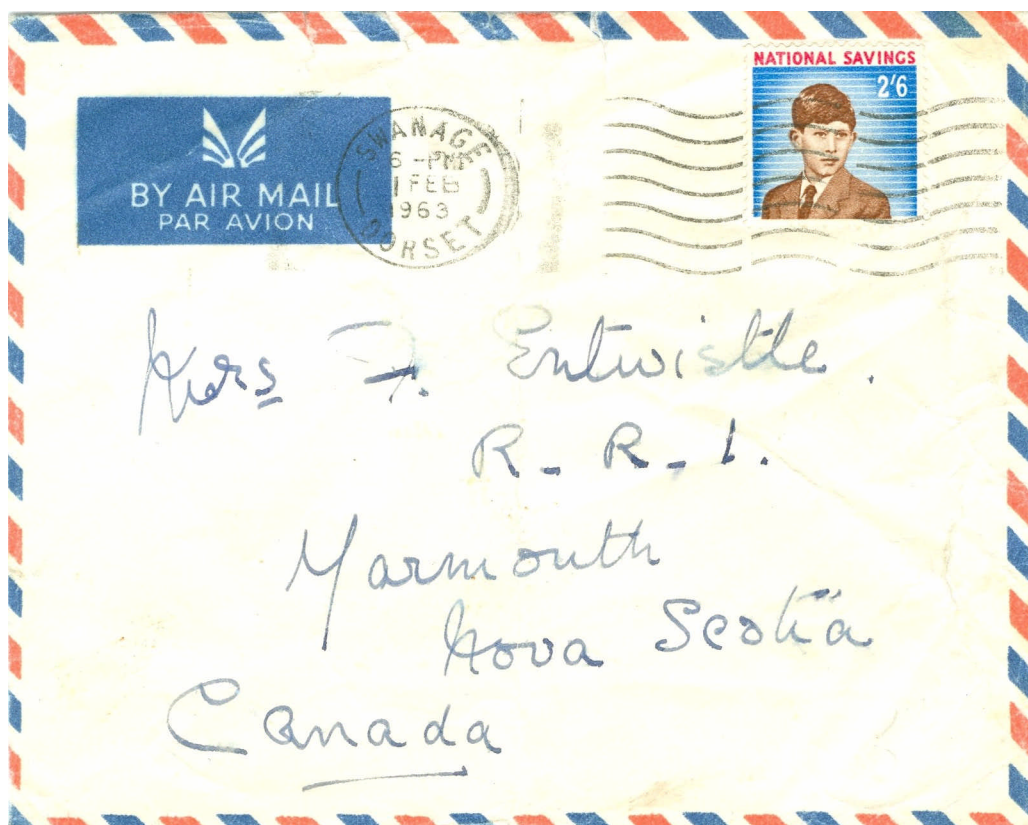 NATIONAL SAVINGS
2'6
BY AIR MAIL
PAR AVION
SWANAGE
6-PM
1 FEB
1963
DORSET
Mrs F. Entwistle.
R. R. 1.
Yarmouth
Nova Scotia
Canada